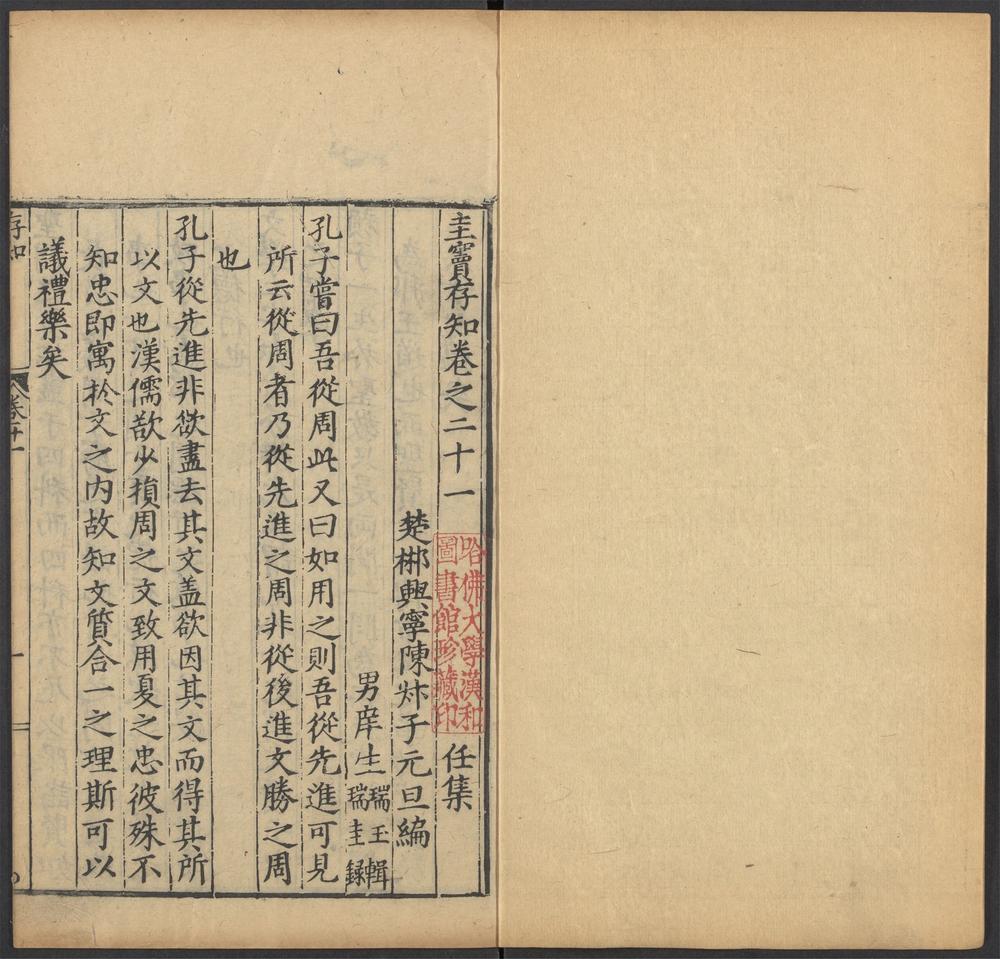 圭竇存知卷之二十一
任集
哈佛大學漢和
圖書館珍藏印
楚郴興寧陳炑子元旦編
男庠生瑞玉輯
瑞圭錄
孔子嘗曰吾從周此又曰如用之則吾從先進可見
所云從周者乃從先進之周非從後進文勝之周
也
孔子從先進非欲盡去其文盖欲因其文而得其所
以文也漢儒欲少損周之文致用夏之忠彼殊不
知忠即寓於文之内故知文質合一之理斯可以
議禮樂矣
存知
卷二十一
一